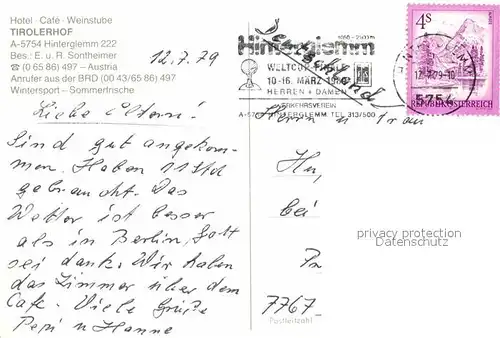 Hotel · Café · Weinstube
TIROLERHOF
A-5754 Hinterglemm 222
Bes.: E. u. R. Sontheimer
☎ (0 65 86) 497 – Austria
Anrufer aus der BRD (00 43/65 86) 497
Wintersport – Sommerfrische
12.7.79
Liebe Eltern!
Sind gut angekom-
men. Haben 11 Std
gebraucht. Das
Wetter ist besser
als in Berlin, Gott
sei dank. Wir haben
das Zimmer über dem
Cafe. Viele Grüße
Pepi u Hanne
Hinterglemm
WELTCUP-FINALE
10.-16. MÄRZ
HERREN + DAMEN
VERKEHRSVEREIN
HINTERGLEMM TEL 313/500
4S
REPUBLIK ÖSTERREICH
5754
Herrn u Frau
Hu,
bei
7767
Postleitzahl
privacy protection
Datenschutz